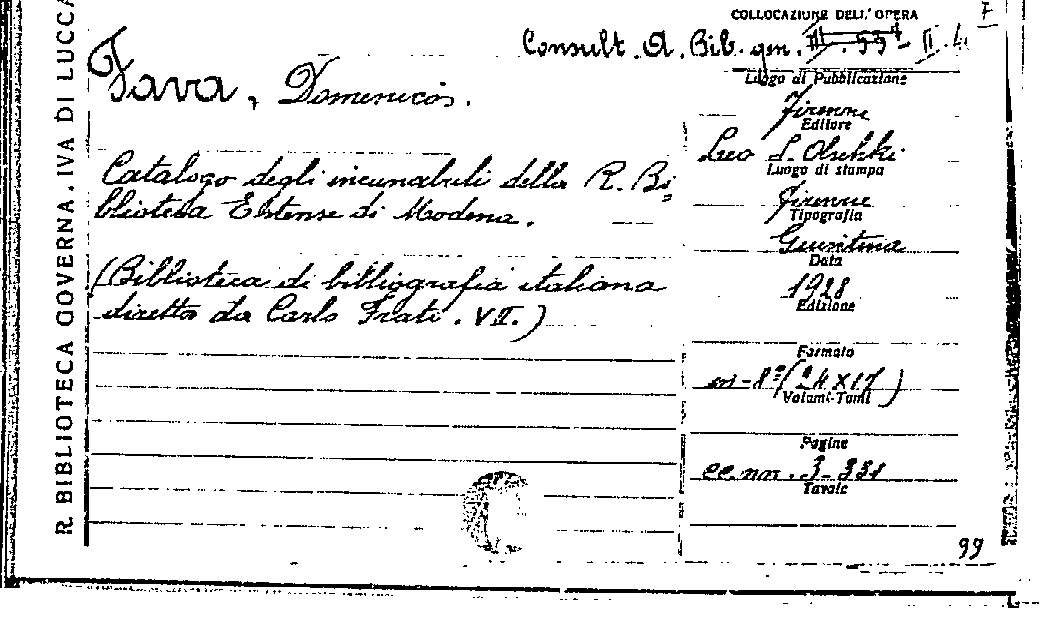 R. BIBLIOTECA GOVERNA.IVA DI LUCCA
COLLOCAZIONE DELL'OPERA
Consult. A. Bib. gen. II. 4.
Fava, Domenico.
Catalogo degli incunabuli della R. Bi=
blioteca Estense di Modena.
(Biblioteca di bibliografia italiana
diretta da Carlo Frati. VII.)
Luogo di Pubblicazione
Firenze
Editore
Leo S. Olschki
Luogo di stampa
Firenze
Tipografia
Giuntina
Data
1928
Edizione
Formato
in-8º (24 x 17)
Volumi-Tomi
Pagine
cc. nn. 3-331
Tavole
99